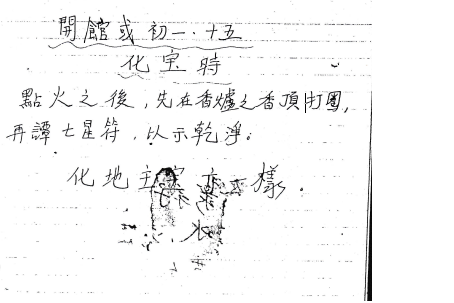 開館或初一．十五
化宝時
點火之後，先在香爐之香頂打圈，
再譚七星符．以示乾淨。
化地主宝 一樣．